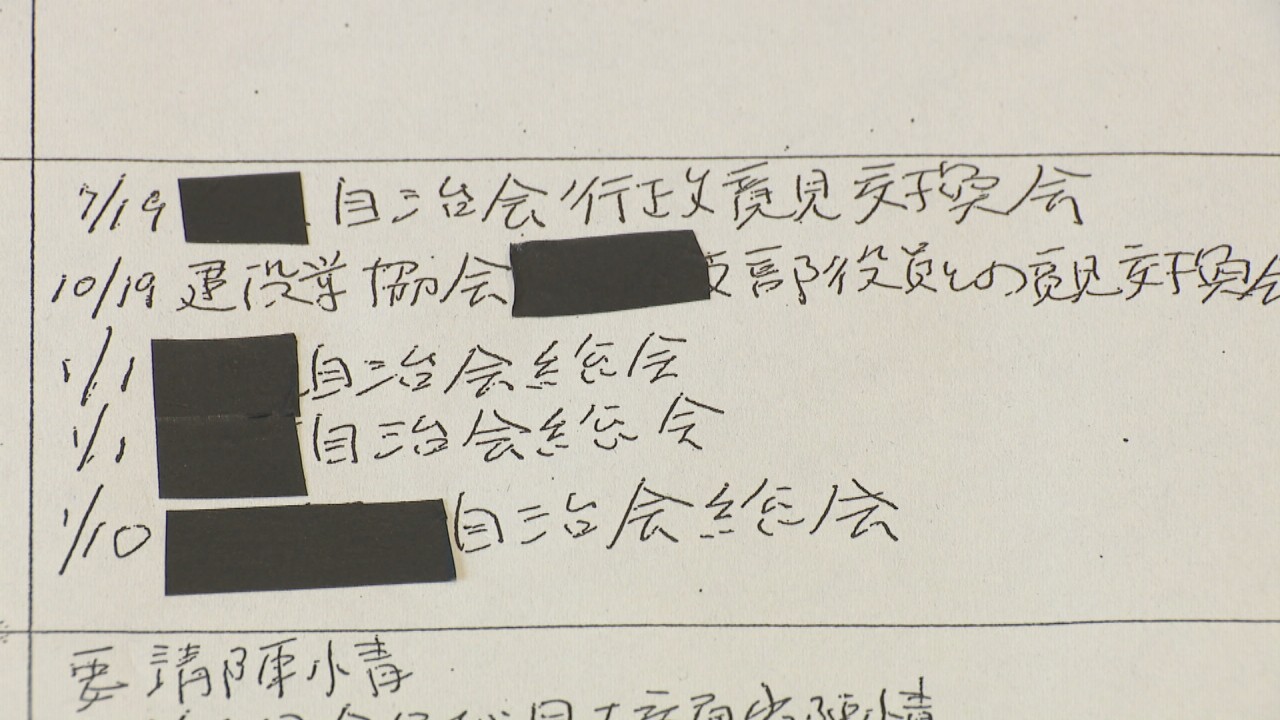 7/19 自治会行政意見交換会
10/19 建設業協会 支部役員との意見交換会
1/1 自治会総会
1/1 自治会総会
1/10 自治会総会
要請陳情
陳情